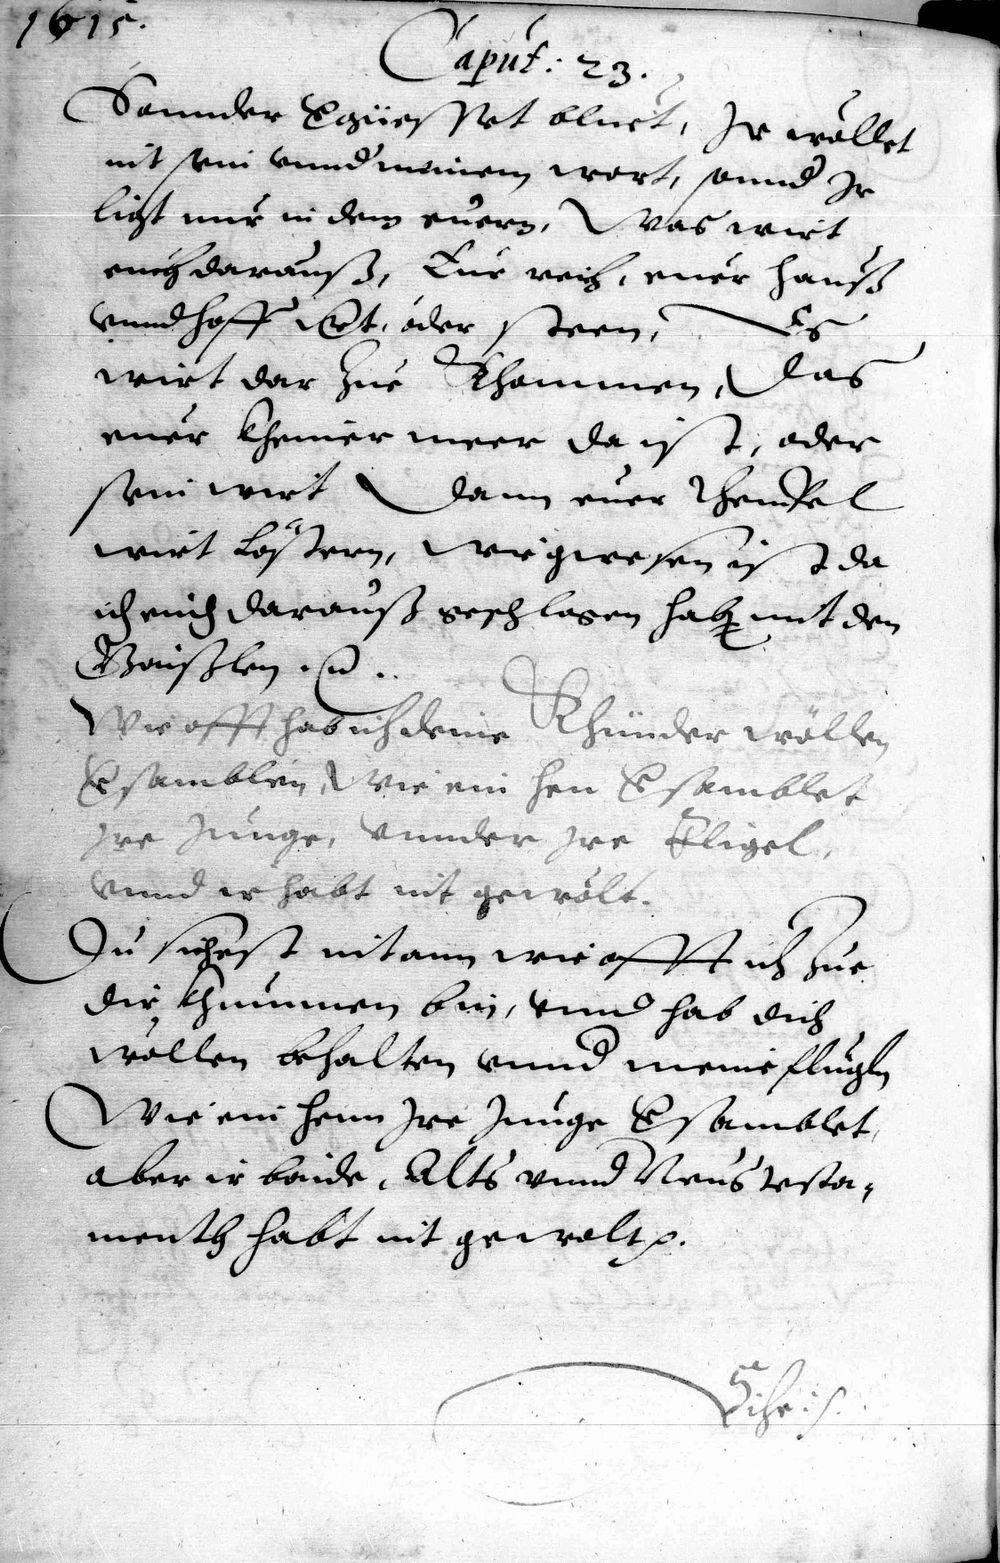 1615.
Caput: 23.
Sonnder Vergüesset bluet, Jr wöllet
nit sein vnnd meinem wort, sonnd Jr
ligt nur in dem euern, Was wirt
euch darauß, Eur reich, euer hauß
vnnd hoff oder steen, Es
wirt dar zue Khommen, Das
euer kheiner meer da ist, oder
sein wirt Dann euer Thempel
wirt wie gwesen ist da
ich euch darauß geschlagen hab mit den
Gaißlen
Wie offt hab ich deine Khünder wöllen
Versamblen, Wie ein hen Versamblet
jre Junge, vnnder jre Fligel,
vnnd ir habt nit gewölt.
Du sichest nit ann wie offt ich zue
dir khummen bin, vnnd hab dich
wöllen behalten vnnd meine flügln
Wie ein henn jre Junge Versamblet,
aber ir baide, Alts vnnd Neus testa-
menth habt nit gewölt.
Sihe